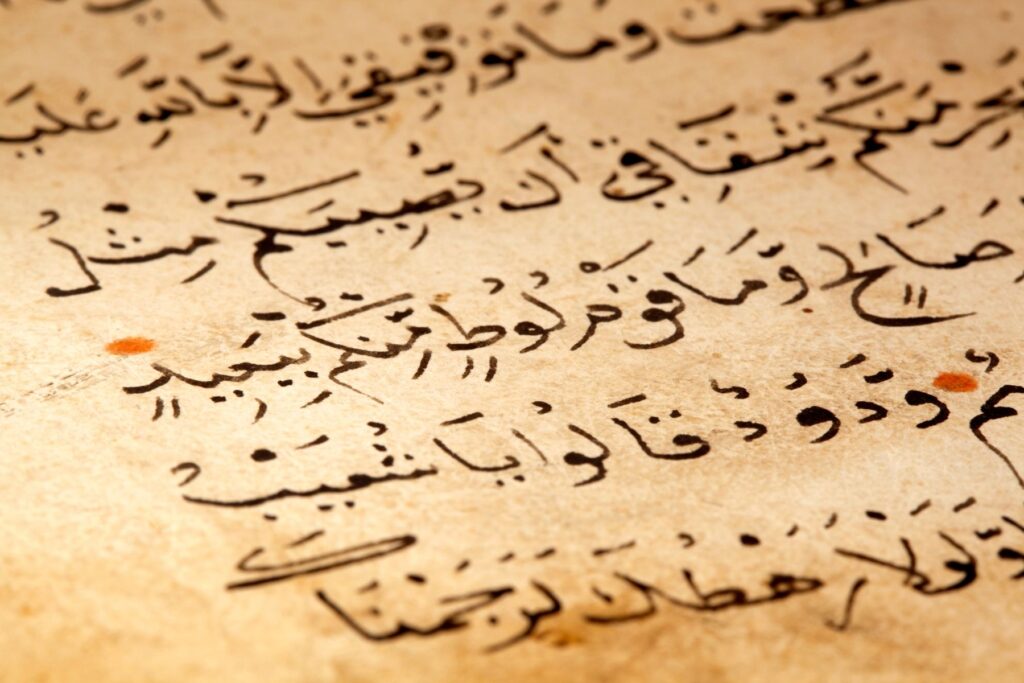 وَمَا تَوْفِيقِي إِلَّا بِاللَّهِ عَلَيْ
ـرِمَنَّكُمْ شِقَاقِي أَنْ يُصِيبَكُمْ مِثْلُ
صَالِحٍ وَمَا قَوْمُ لُوطٍ مِنْكُمْ بِبَعِيدٍ
ـمٌ وَدُودٌ قَالُوا يَا شُعَيْبُ
وَلَوْلَا رَهْطُكَ لَرَجَمْنَاكَ